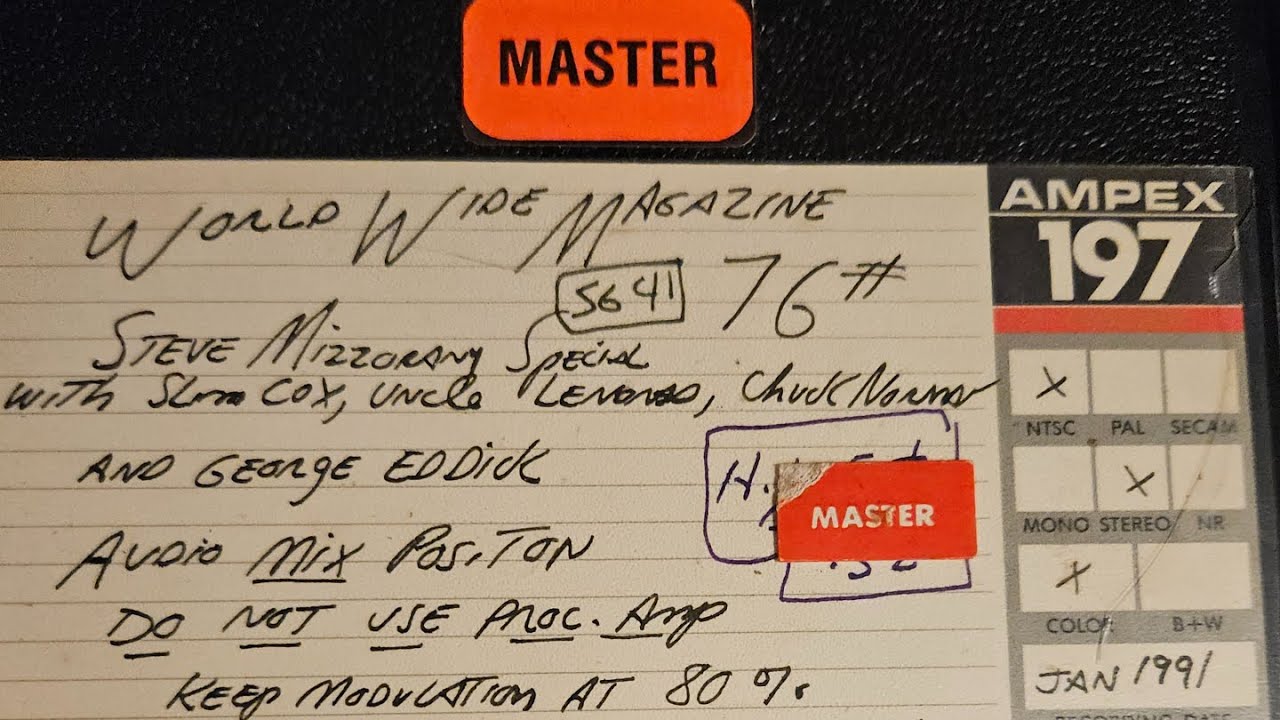 MASTER
WORLD WIDE MAGAZINE
5641 76#
STEVE MIZZORANY SPECIAL
WITH Slim COX, UNCLE LENARD, Chuck Norman
AND GEORGE EDDICK
AUDIO MIX POSITON
DO NOT USE PROC. Amp
KEEP MODULATION AT 80%
MASTER
AMPEX
197
X
NTSC PAL SECAM
X
MONO STEREO NR
X
COLOR B+W
JAN 1991
RECORDING DATE